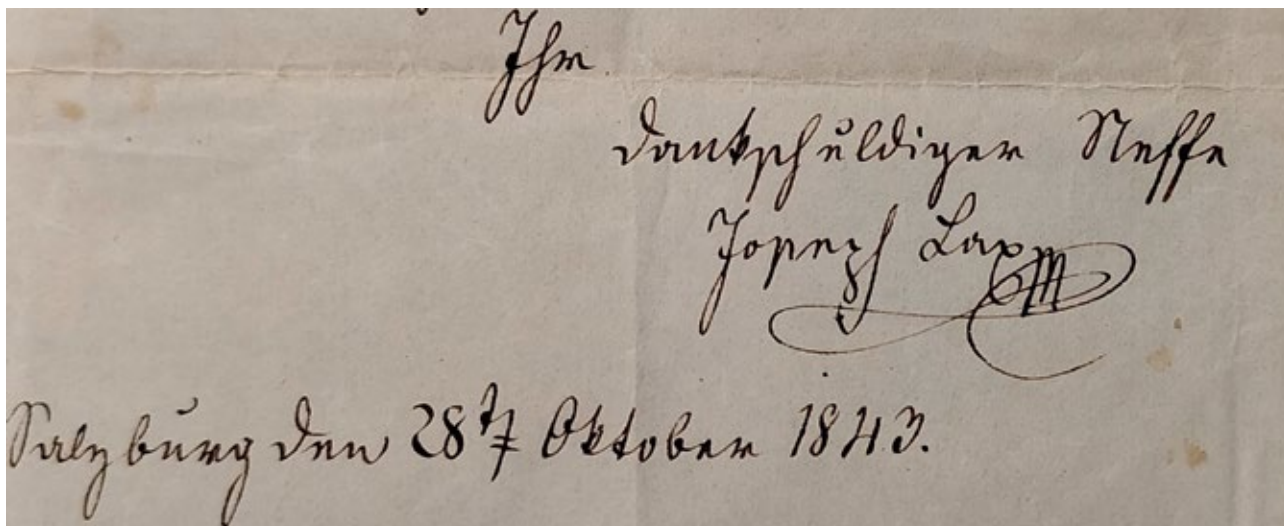 Ihr
dankschuldiger Neffe
Joseph Lax
Salzburg den 28t Oktober 1843.